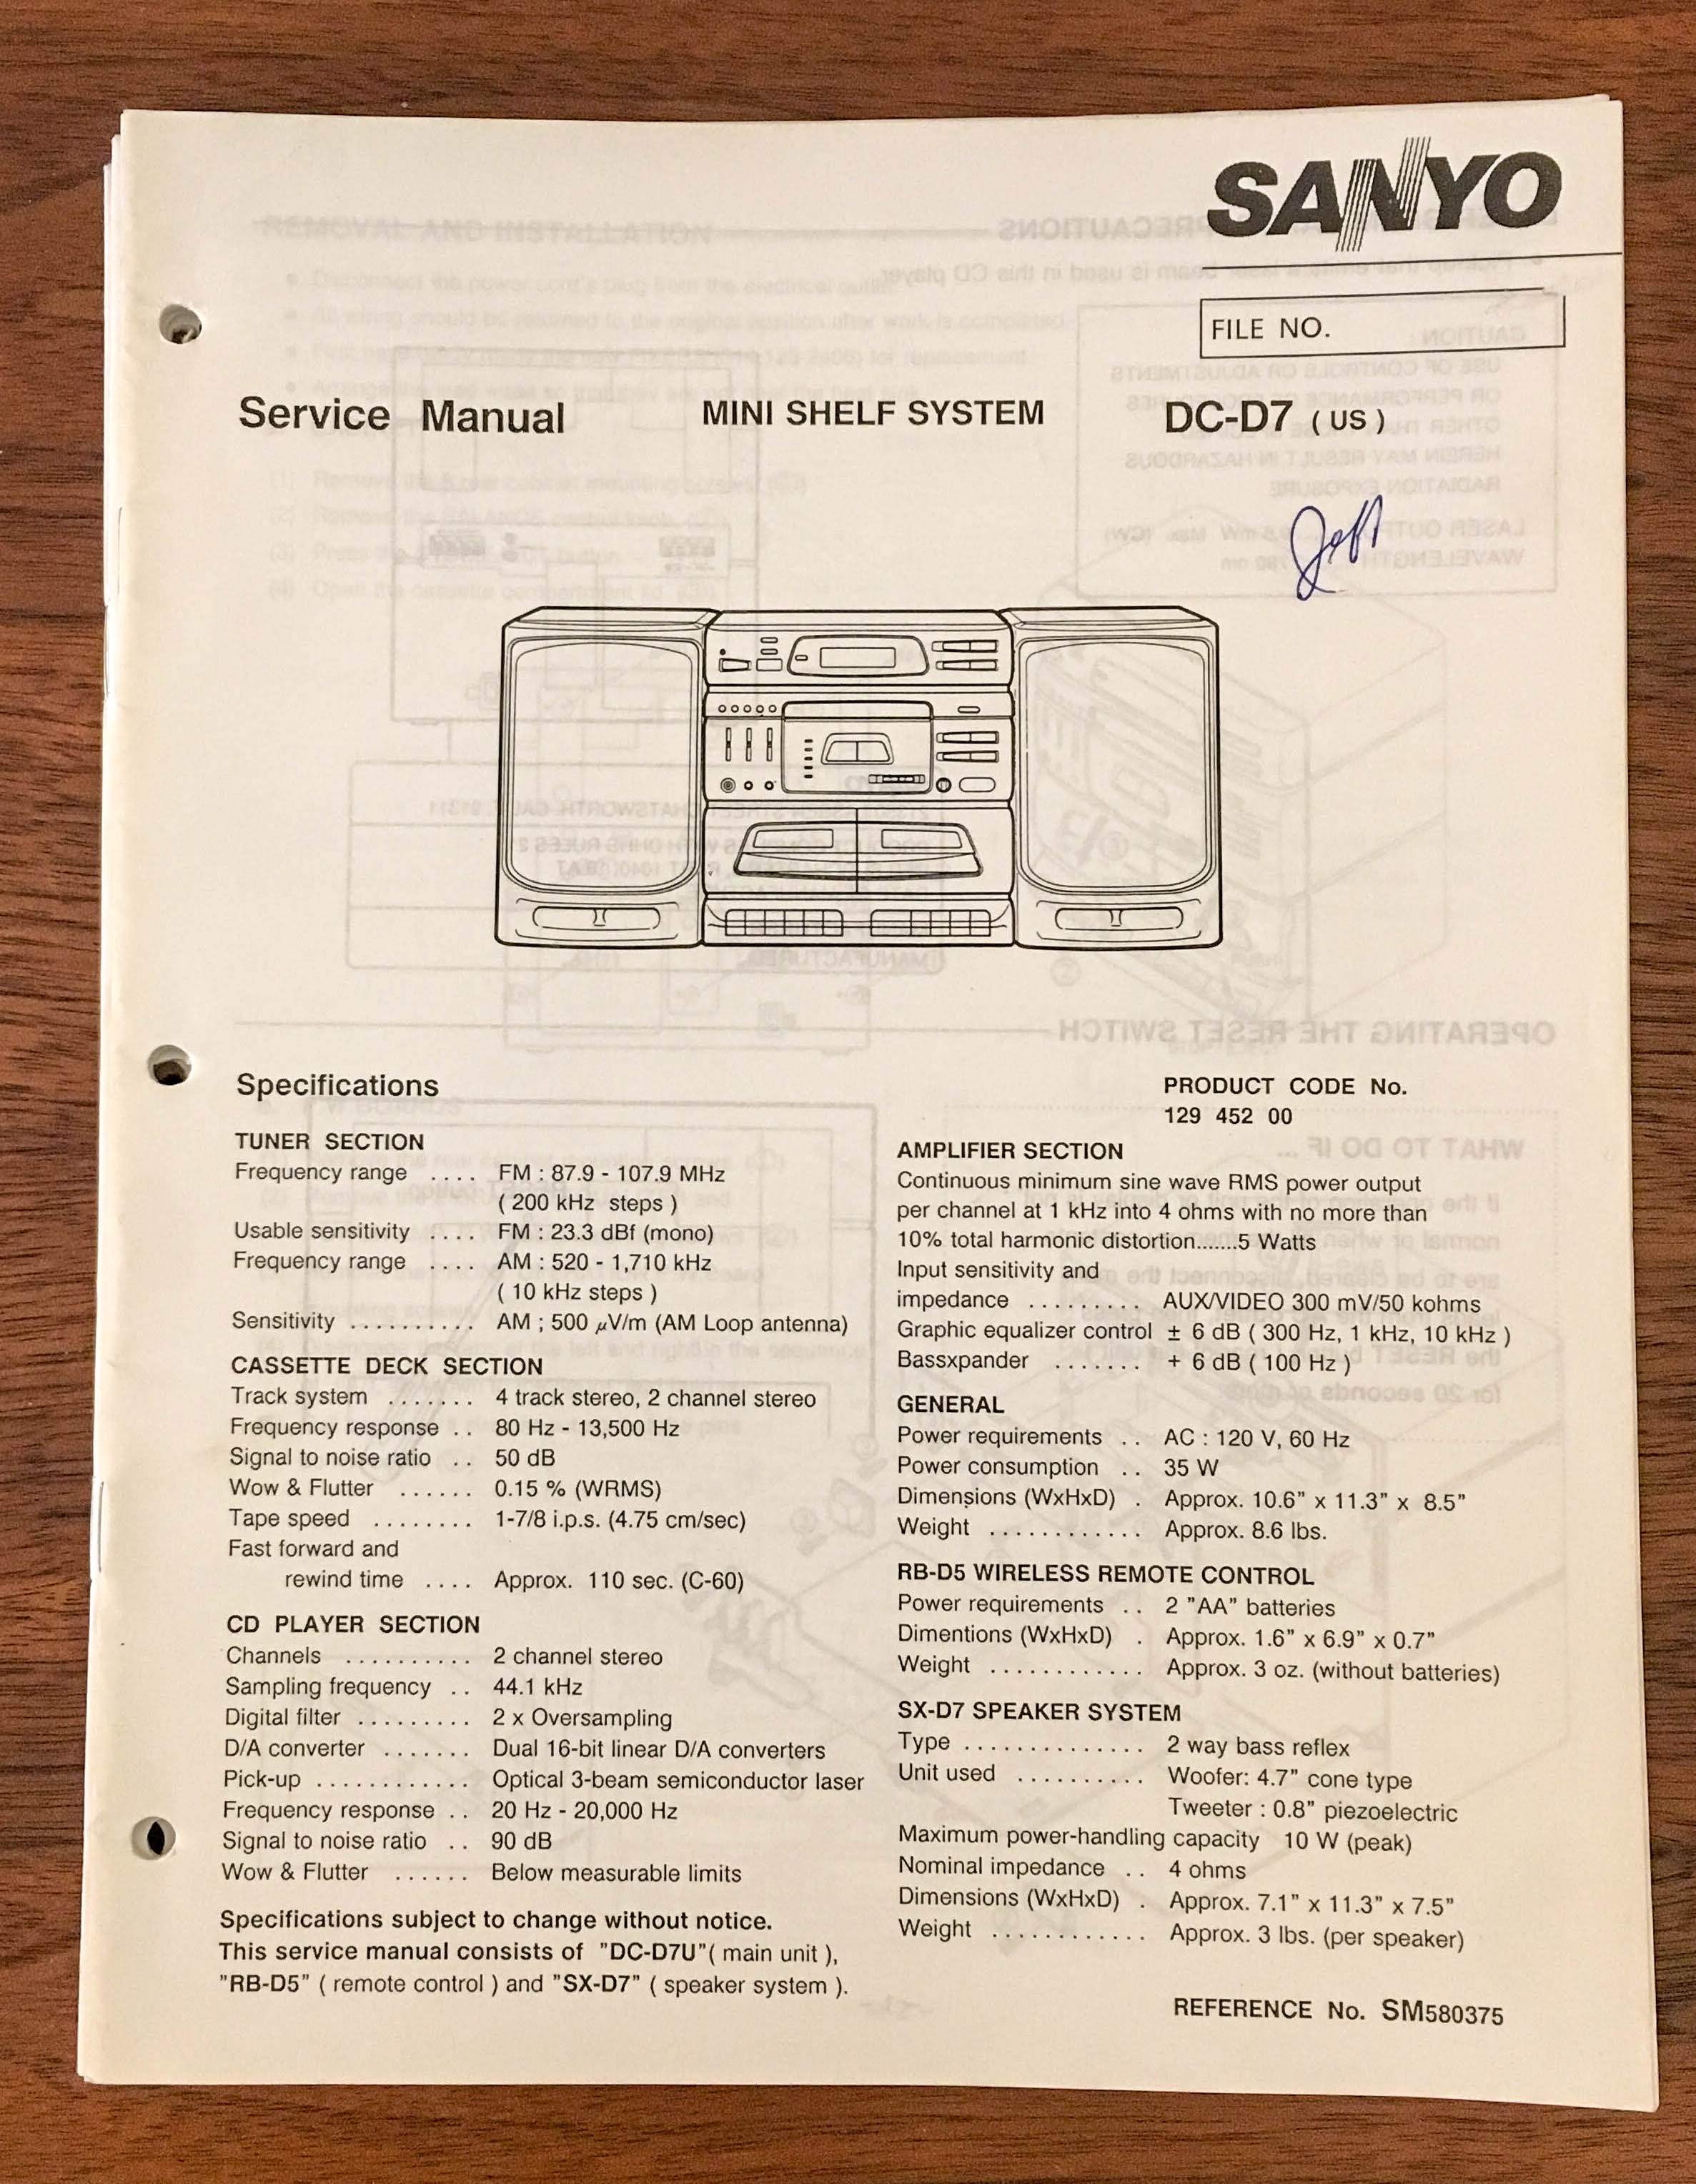 SANYO
FILE NO.
Service Manual MINI SHELF SYSTEM DC-D7 ( US )
Jeff
Specifications
TUNER SECTION
Frequency range .... FM : 87.9 - 107.9 MHz
( 200 kHz steps )
Usable sensitivity .... FM : 23.3 dBf (mono)
Frequency range .... AM : 520 - 1,710 kHz
( 10 kHz steps )
Sensitivity .......... AM ; 500 µV/m (AM Loop antenna)
CASSETTE DECK SECTION
Track system ....... 4 track stereo, 2 channel stereo
Frequency response .. 80 Hz - 13,500 Hz
Signal to noise ratio .. 50 dB
Wow & Flutter ...... 0.15 % (WRMS)
Tape speed ........ 1-7/8 i.p.s. (4.75 cm/sec)
Fast forward and
rewind time .... Approx. 110 sec. (C-60)
CD PLAYER SECTION
Channels .......... 2 channel stereo
Sampling frequency .. 44.1 kHz
Digital filter ......... 2 x Oversampling
D/A converter ....... Dual 16-bit linear D/A converters
Pick-up ............ Optical 3-beam semiconductor laser
Frequency response .. 20 Hz - 20,000 Hz
Signal to noise ratio .. 90 dB
Wow & Flutter ...... Below measurable limits
Specifications subject to change without notice.
This service manual consists of "DC-D7U"( main unit ),
"RB-D5" ( remote control ) and "SX-D7" ( speaker system ).
PRODUCT CODE No.
129 452 00
AMPLIFIER SECTION
Continuous minimum sine wave RMS power output
per channel at 1 kHz into 4 ohms with no more than
10% total harmonic distortion.......5 Watts
Input sensitivity and
impedance ......... AUX/VIDEO 300 mV/50 kohms
Graphic equalizer control ± 6 dB ( 300 Hz, 1 kHz, 10 kHz )
Bassxpander ....... + 6 dB ( 100 Hz )
GENERAL
Power requirements .. AC : 120 V, 60 Hz
Power consumption .. 35 W
Dimensions (WxHxD) . Approx. 10.6" x 11.3" x 8.5"
Weight ............ Approx. 8.6 lbs.
RB-D5 WIRELESS REMOTE CONTROL
Power requirements .. 2 "AA" batteries
Dimentions (WxHxD) . Approx. 1.6" x 6.9" x 0.7"
Weight ............ Approx. 3 oz. (without batteries)
SX-D7 SPEAKER SYSTEM
Type .............. 2 way bass reflex
Unit used .......... Woofer: 4.7" cone type
Tweeter : 0.8" piezoelectric
Maximum power-handling capacity 10 W (peak)
Nominal impedance .. 4 ohms
Dimensions (WxHxD) . Approx. 7.1" x 11.3" x 7.5"
Weight ............ Approx. 3 lbs. (per speaker)
REFERENCE No. SM580375